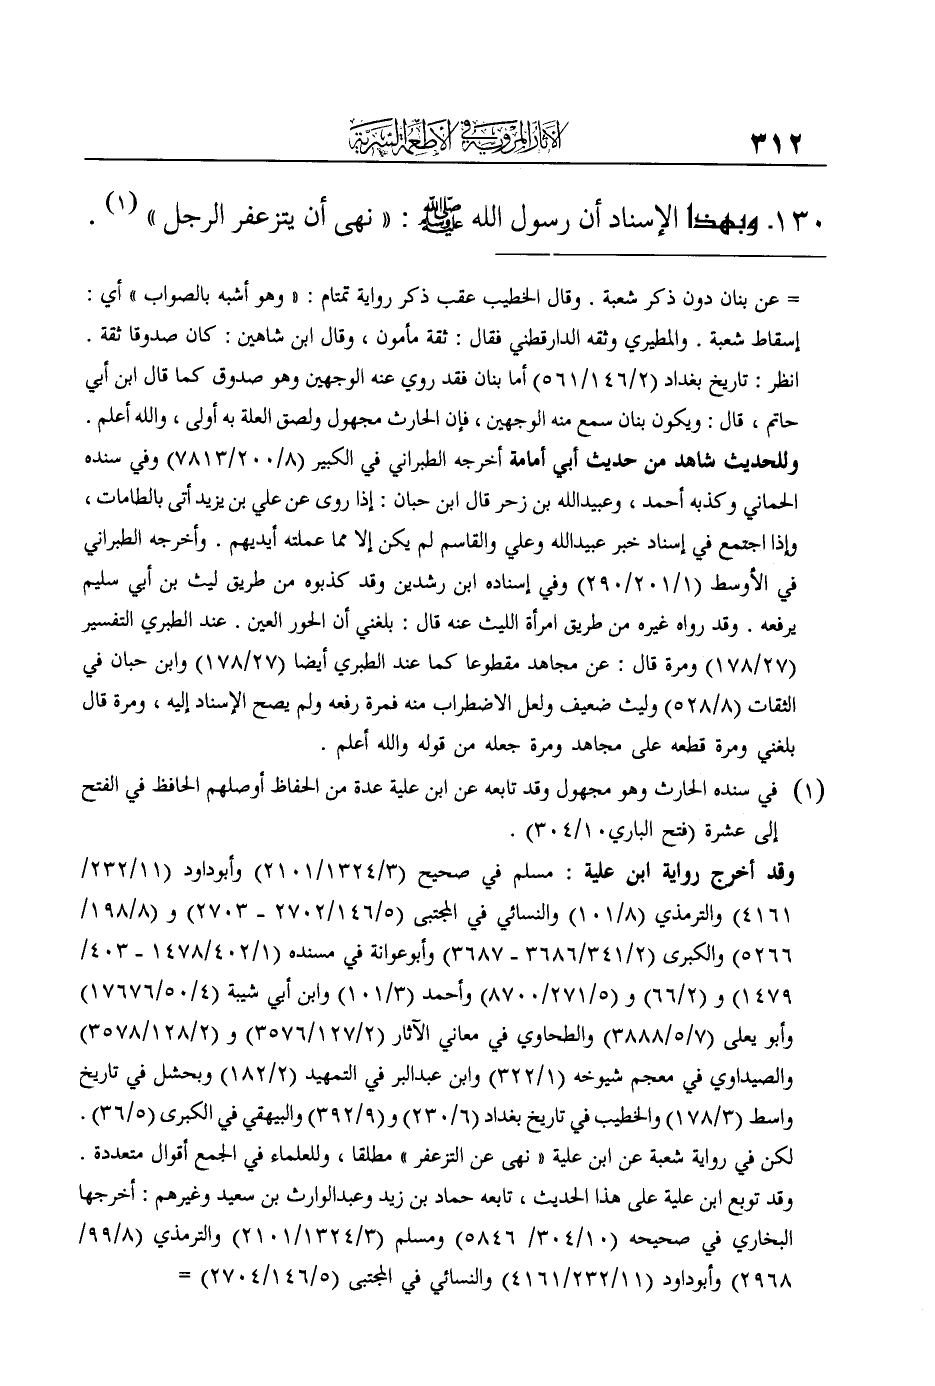 ٣١٢ الآثار المروية في الأطعمة السرية
١٣٠. وبهذا الإسناد أن رسول الله ﷺ : « نهى أن يتزعفر الرجل » (١) .
= عن بنان دون ذكر شعبة . وقال الخطيب عقب ذكر رواية تمتام : « وهو أشبه بالصواب » أي :
إسقاط شعبة . والمطيري وثقه الدارقطني فقال : ثقة مأمون ، وقال ابن شاهين : كان صدوقا ثقة .
انظر : تاريخ بغداد (٥٦١/١٤٦/٢) أما بنان فقد روي عنه الوجهين وهو صدوق كما قال ابن أبي
حاتم ، قال : ويكون بنان سمع منه الوجهين ، فإن الحارث مجهول ولصق العلة به أولى ، والله أعلم .
وللحديث شاهد من حديث أبي أمامة أخرجه الطبراني في الكبير (٧٨١٣/٢٠٠/٨) وفي سنده
الحماني وكذبه أحمد ، وعبيدالله بن زحر قال ابن حبان : إذا روى عن علي بن يزيد أتى بالطامات ،
وإذا اجتمع في إسناد خبر عبيدالله وعلي والقاسم لم يكن إلا مما عملته أيديهم . وأخرجه الطبراني
في الأوسط (٢٩٠/٢٠١/١) وفي إسناده ابن رشدين وقد كذبوه من طريق ليث بن أبي سليم
يرفعه . وقد رواه غيره من طريق امرأة الليث عنه قال : بلغني أن الحور العين . عند الطبري التفسير
(١٧٨/٢٧) ومرة قال : عن مجاهد مقطوعا كما عند الطبري أيضا (١٧٨/٢٧) وابن حبان في
الثقات (٥٢٨/٨) وليث ضعيف ولعل الاضطراب منه فمرة رفعه ولم يصح الإسناد إليه ، ومرة قال
بلغني ومرة قطعه على مجاهد ومرة جعله من قوله والله أعلم .
(١) في سنده الحارث وهو مجهول وقد تابعه عن ابن علية عدة من الحفاظ أوصلهم الحافظ في الفتح
إلى عشرة (فتح الباري٣٠٤/١٠) .
وقد أخرج رواية ابن علية : مسلم في صحيح (٢١٠١/١٣٢٤/٣) وأبوداود (٢٣٢/١١/
٤١٦١) والترمذي (١٠١/٨) والنسائي في المجتبى (٢٧٠٢/١٤٦/٥ ـ ٢٧٠٣) و (١٩٨/٨/
٥٢٦٦) والكبرى (٣٦٨٦/٣٤١/٢ ـ ٣٦٨٧) وأبوعوانة في مسنده (١٤٧٨/٤٠٢/١ ـ ٤٠٣/
١٤٧٩) و (٦٦/٢) و (٨٧٠٠/٢٧١/٥) وأحمد (١٠١/٣) وابن أبي شيبة (١٧٦٧٦/٥٠/٤)
وأبو يعلى (٣٨٨٨/٥/٧) والطحاوي في معاني الآثار (٣٥٧٦/١٢٧/٢) و (٣٥٧٨/١٢٨/٢)
والصيداوي في معجم شيوخه (٣٢٢/١) وابن عبدالبر في التمهيد (١٨٢/٢) وبحشل في تاريخ
واسط (١٧٨/٣) والخطيب في تاريخ بغداد (٢٣٠/٦) و (٣٩٢/٩) والبيهقي في الكبرى (٣٦/٥) .
لكن في رواية شعبة عن ابن علية « نهى عن التزعفر » مطلقا ، وللعلماء في الجمع أقوال متعددة .
وقد توبع ابن علية على هذا الحديث ، تابعه حماد بن زيد وعبدالوارث بن سعيد وغيرهم : أخرجها
البخاري في صحيحه (٣٠٤/١٠/ ٥٨٤٦) ومسلم (٢١٠١/١٣٢٤/٣) والترمذي (٩٩/٨/
٢٩٦٨) وأبوداود (٤١٦١/٢٣٢/١١) والنسائي في المجتبى (٢٧٠٤/١٤٦/٥) =